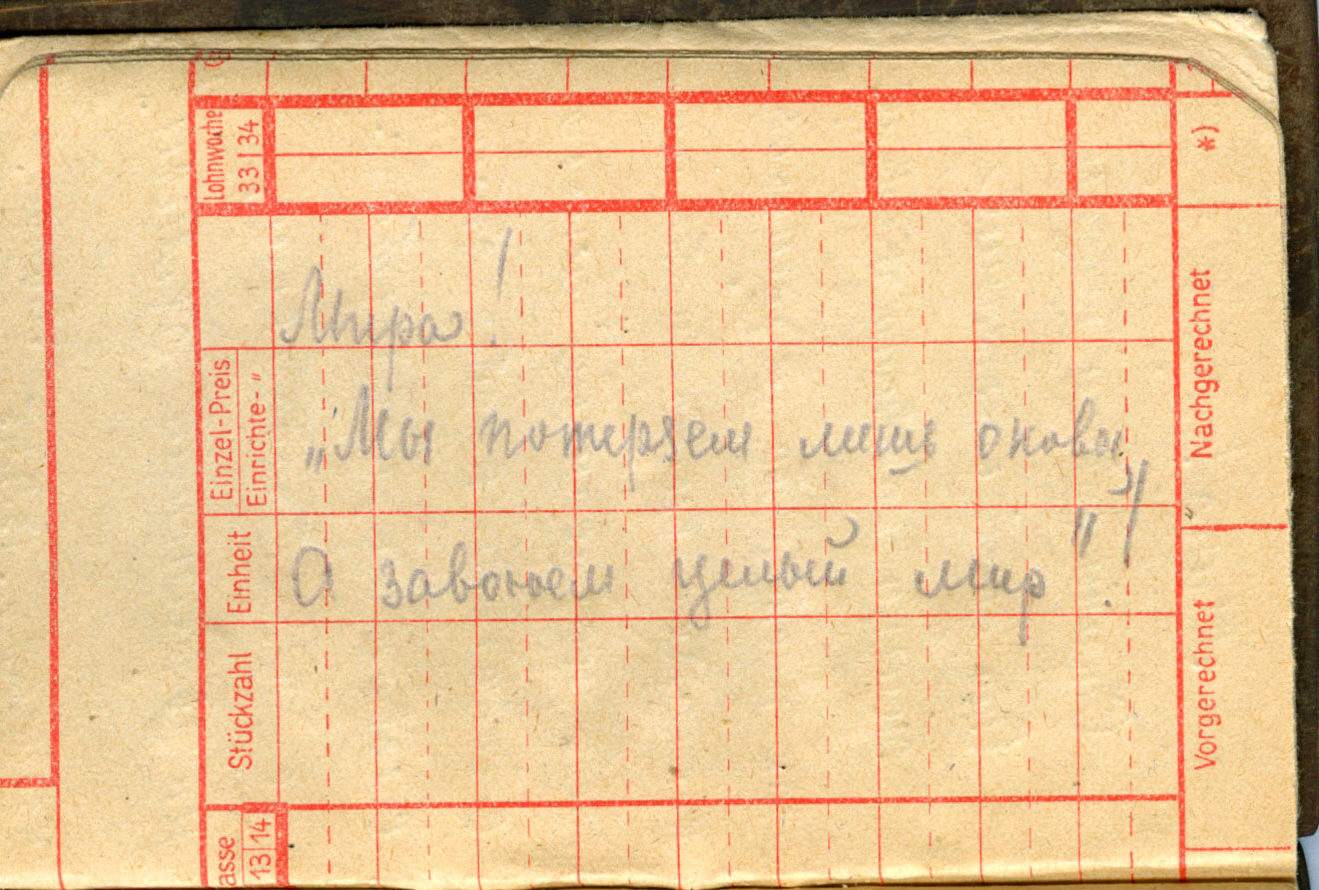 Lohnwoche
33|34
*)
Мира!
Einzel-Preis
Einrichte-"
Nachgerechnet
„Мы потеряем лишь оковы,
Einheit
А завоюем целый мир"!
Stückzahl
Vorgerechnet
asse
13|14